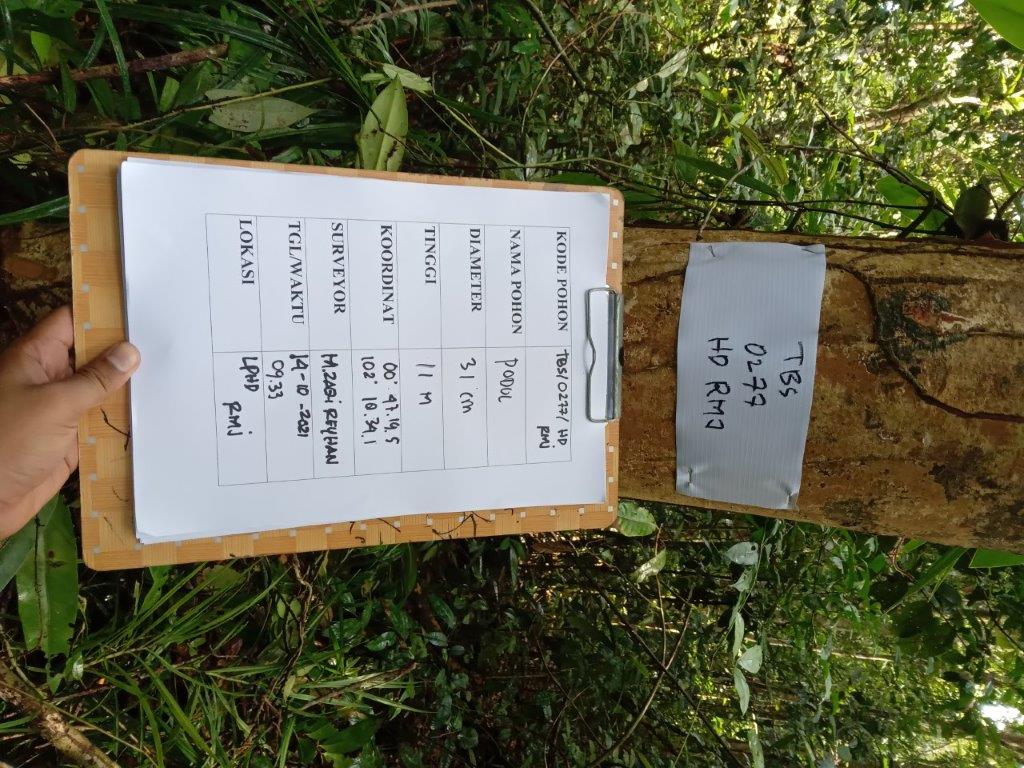 TBS
0277
HD RMJ
KODE POHON TBS/0277/ HD
RMj
NAMA POHON PODUL
DIAMETER 31 cm
TINGGI 11 M
KOORDINAT 00° 47.19.5
102° 10.34.1
SURVEYOR M.ZAQi REYHAN
TGL/WAKTU 14-10-2021
09.33
LOKASI LPHD
RMj